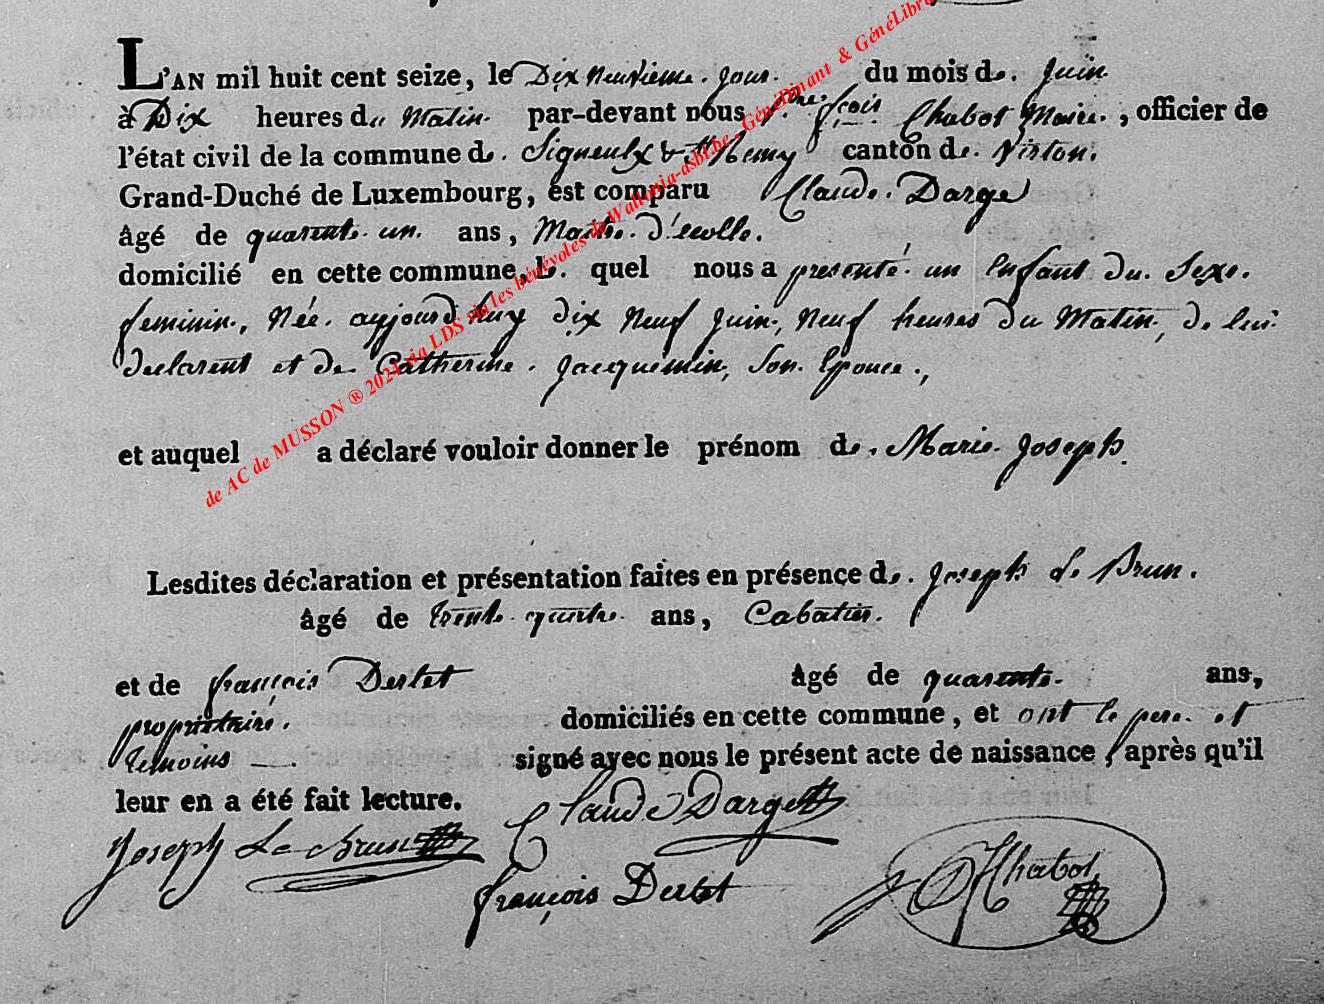 L'AN mil huit cent seize, le Dix neuvieme jour du mois de Juin
à Dix heures du Matin par-devant nous fçois Chabot Maire, officier de
l'état civil de la commune de Signeulx & St Remy canton de Virton.
Grand-Duché de Luxembourg, est comparu Claude Darge
âgé de quarente un ans, Maitre d'ecolle.
domicilié en cette commune, le quel nous a presenté un Enfant du Sexe
feminin, Née aujourd'huy dix Neuf Juin, Neuf heures du Matin, de lui
declarent et de Catherine Jacquemin, Son Epouce,
et auquel a déclaré vouloir donner le prénom de Marie Joseph
Lesdites déclaration et présentation faites en présence de Joseph Le Brun.
âgé de trente quatre ans, Cabatier.
et de françois Derlet âgé de quarente ans,
propriétaire. domiciliés en cette commune, et ont le pere et
temoins signé avec nous le présent acte de naissance, après qu'il
leur en a été fait lecture.
Claude Darget
Joseph Le brun
françois Derlet
Chabot
de AC de MUSSON ® 2021 via LDS via les bénévoles de Wallonia-asbl.be, GénéDinant & GénéLibra